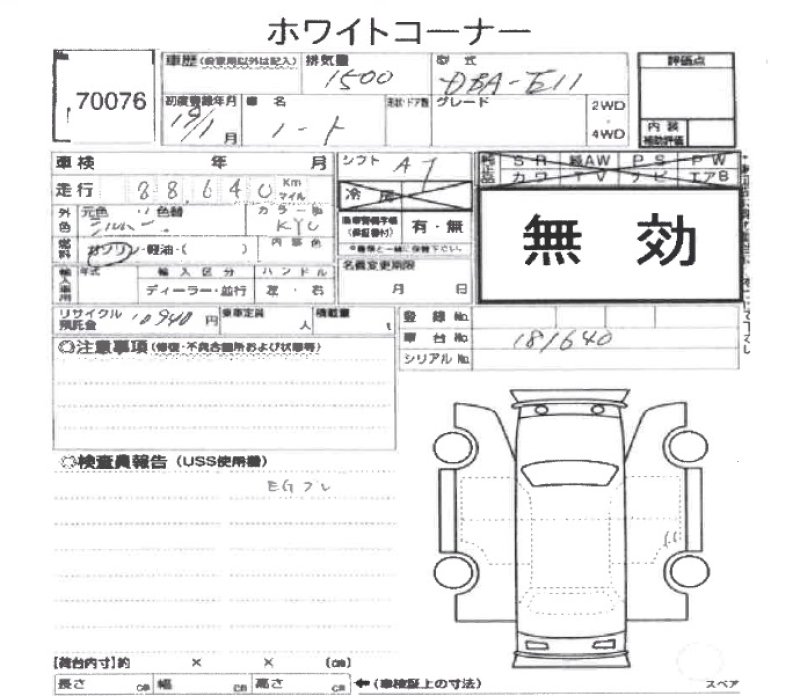 ホワイトコーナー
70076
車歴(自家用以外は記入) 排気量 型式
1500 DBA-E11
初度登録年月 車名 形状・ドア数 グレード 2WD・4WD
19/1月 ノート
評価点
内装 補助評価
車検 年 月 シフト AT
走行 88,640 Km マイル
SR 純AW PS PW
カワ TV ナビ エアB
冷房
外色 元色 シルバー 色替 カラーNo. KY0
内装色
有・無
無効
燃料 ガソリン・軽油・( )
名義変更期限
月 日
輸入車用 年式 輸入区分 ハンドル
ディーラー・並行 左・右
リサイクル預託金 10940円 乗車定員 人 積載量 t
登録No.
車台No. 181640
シリアルNo.
◎注意事項(修復・不具合箇所および状態等)
◎検査員報告(USS使用欄)
EGフレ
[荷台内寸]約 × × (cm)
長さ cm 幅 cm 高さ cm ←(車検証上の寸法)
スペア